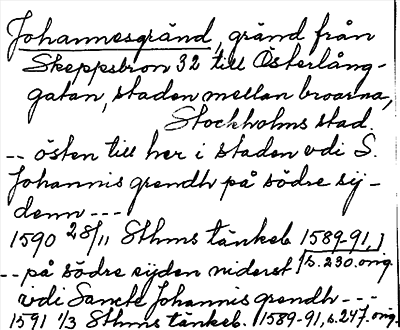 Johannesgränd, gränd från
Skeppsbron 32 till Österlång-
gatan, staden mellan broarna,
Stockholms stad.
-- östen till her i staden vdi S.
Johannis grendh på södre sij-
denn ---
1590 28/11 Sthms tänkeb. 1589-91,
s. 230. orig.
-- på södre sijden niderst
vdi Sancte Johannis grendh ---
1591 1/3 Sthms tänkeb. 1589-91, s. 247. orig.